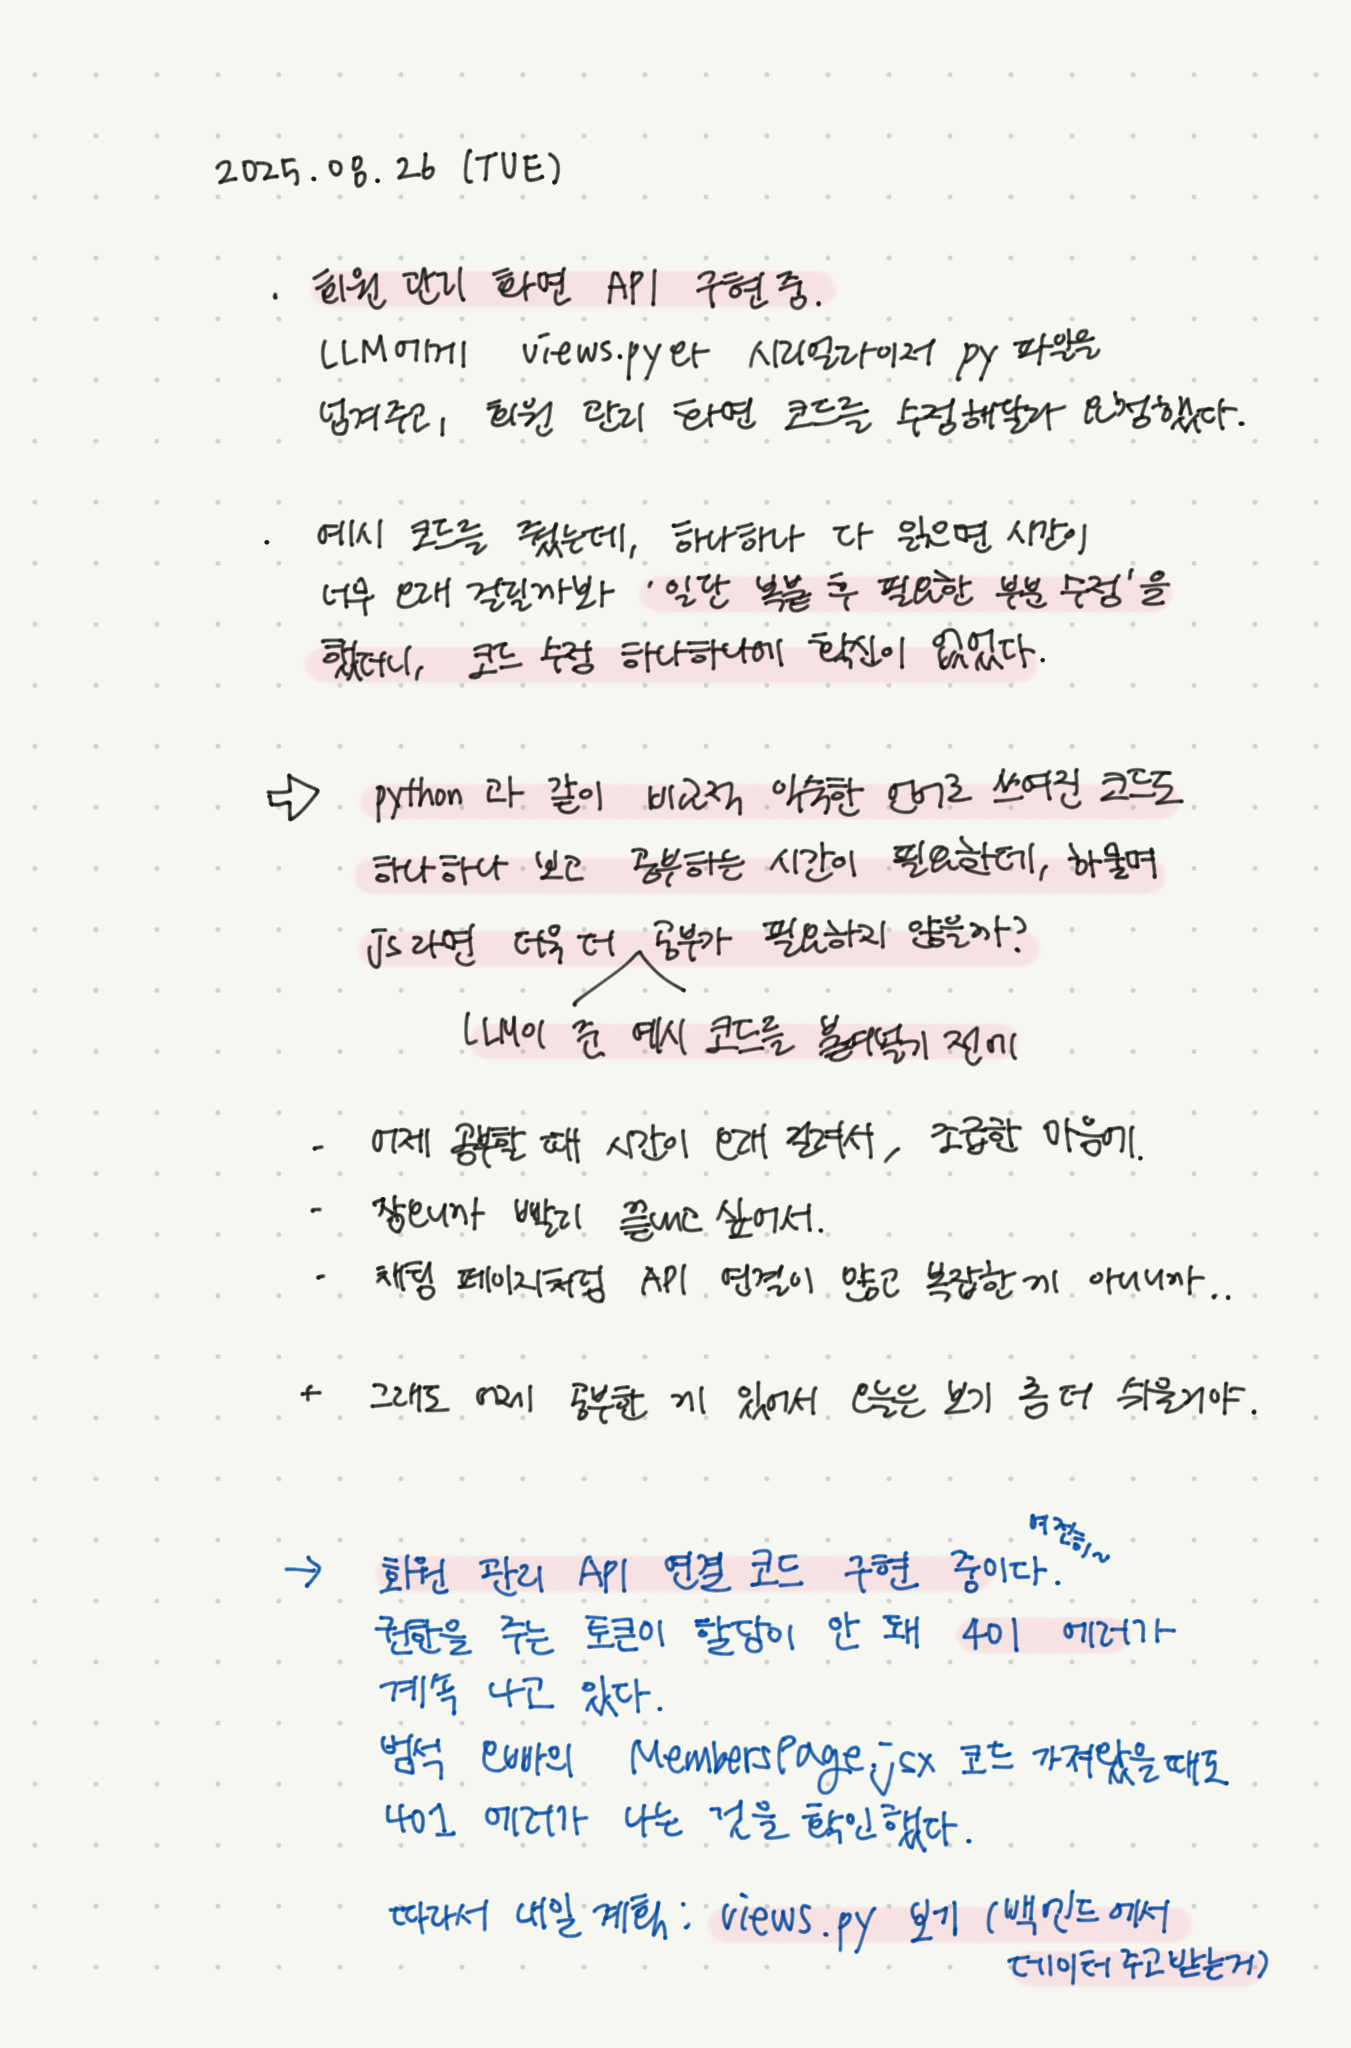 2025.08.26 (TUE)
· 회원 관리 화면 API 구현 중.
LLM에게 views.py와 시리얼라이저 py 파일을
넘겨주고, 회원 관리 화면 코드를 수정해달라 요청했다.
· 예시 코드를 줬는데, 하나하나 다 읽으면 시간이
너무 오래 걸릴까봐 '일단 복붙 후 필요한 부분 수정'을
했더니, 코드 수정 하나하나에 확신이 없었다.
⇨ python 과 같이 비교적 익숙한 언어로 쓰여진 코드도
하나하나 보고 공부하는 시간이 필요한데, 하물며
js라면 더욱 더 공부가 필요하지 않을까?
LLM이 준 예시 코드를 붙여넣기 전에
- 어제 공부할 때 시간이 오래 걸려서, 조급한 마음에.
- 잠오니까 빨리 끝내고 싶어서.
- 채팅 페이지처럼 API 연결이 많고 복잡한 게 아니니까..
+ 그래도 어제 공부한 게 있어서 오늘은 보기 좀 더 쉬울거야.
여전히~
→ 회원 관리 API 연결 코드 구현 중이다.
권한을 주는 토큰이 할당이 안 돼 401 에러가
계속 나고 있다.
범석 오빠의 MembersPage.jsx 코드 가져왔을때도
401 에러가 나는 것을 확인했다.
따라서 내일 계획: views.py 보기 (백엔드에서
데이터 주고받는거)